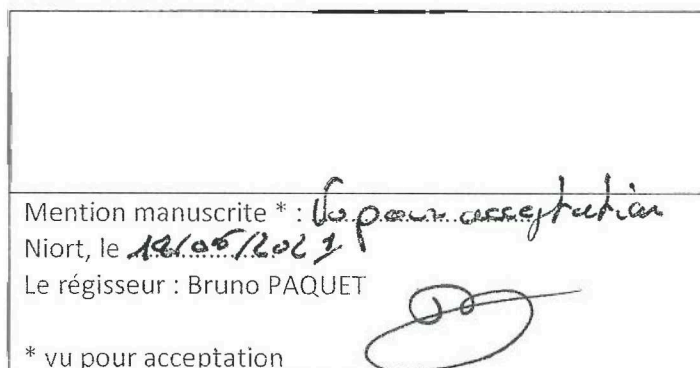 Mention manuscrite * : Vu pour acceptation
Niort, le
Le régisseur : Bruno PAQUET
* vu pour acceptation